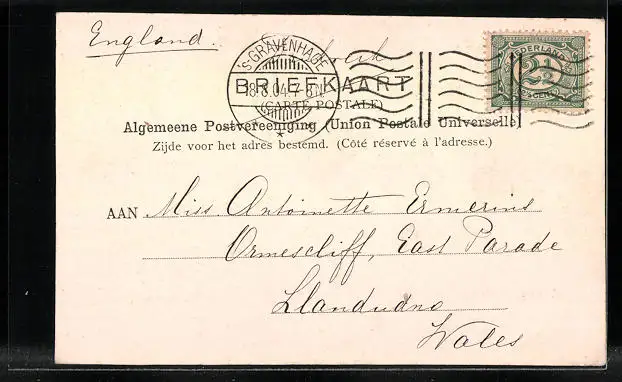 England.
'S GRAVENHAGE
18.8.04.7-8N
NEDERLAND
2½
CENT
BRIEFKAART
(CARTE POSTALE)
Algemeene Postvereeniging (Union Postale Universelle)
Zijde voor het adres bestemd. (Côté réservé à l'adresse.)
AAN Miss Antoinette Ermerins
Ormescliff, East Parade
Llandudno
Wales